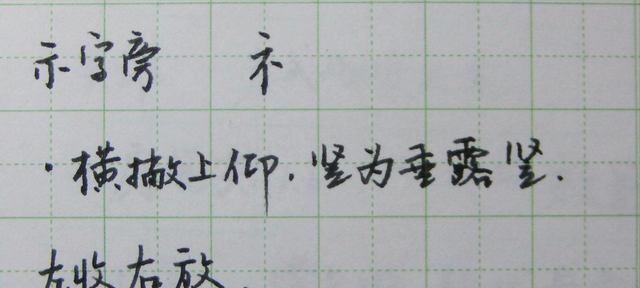 示字旁 礻
·横撇上仰.竖为垂露竖.
左收右放.